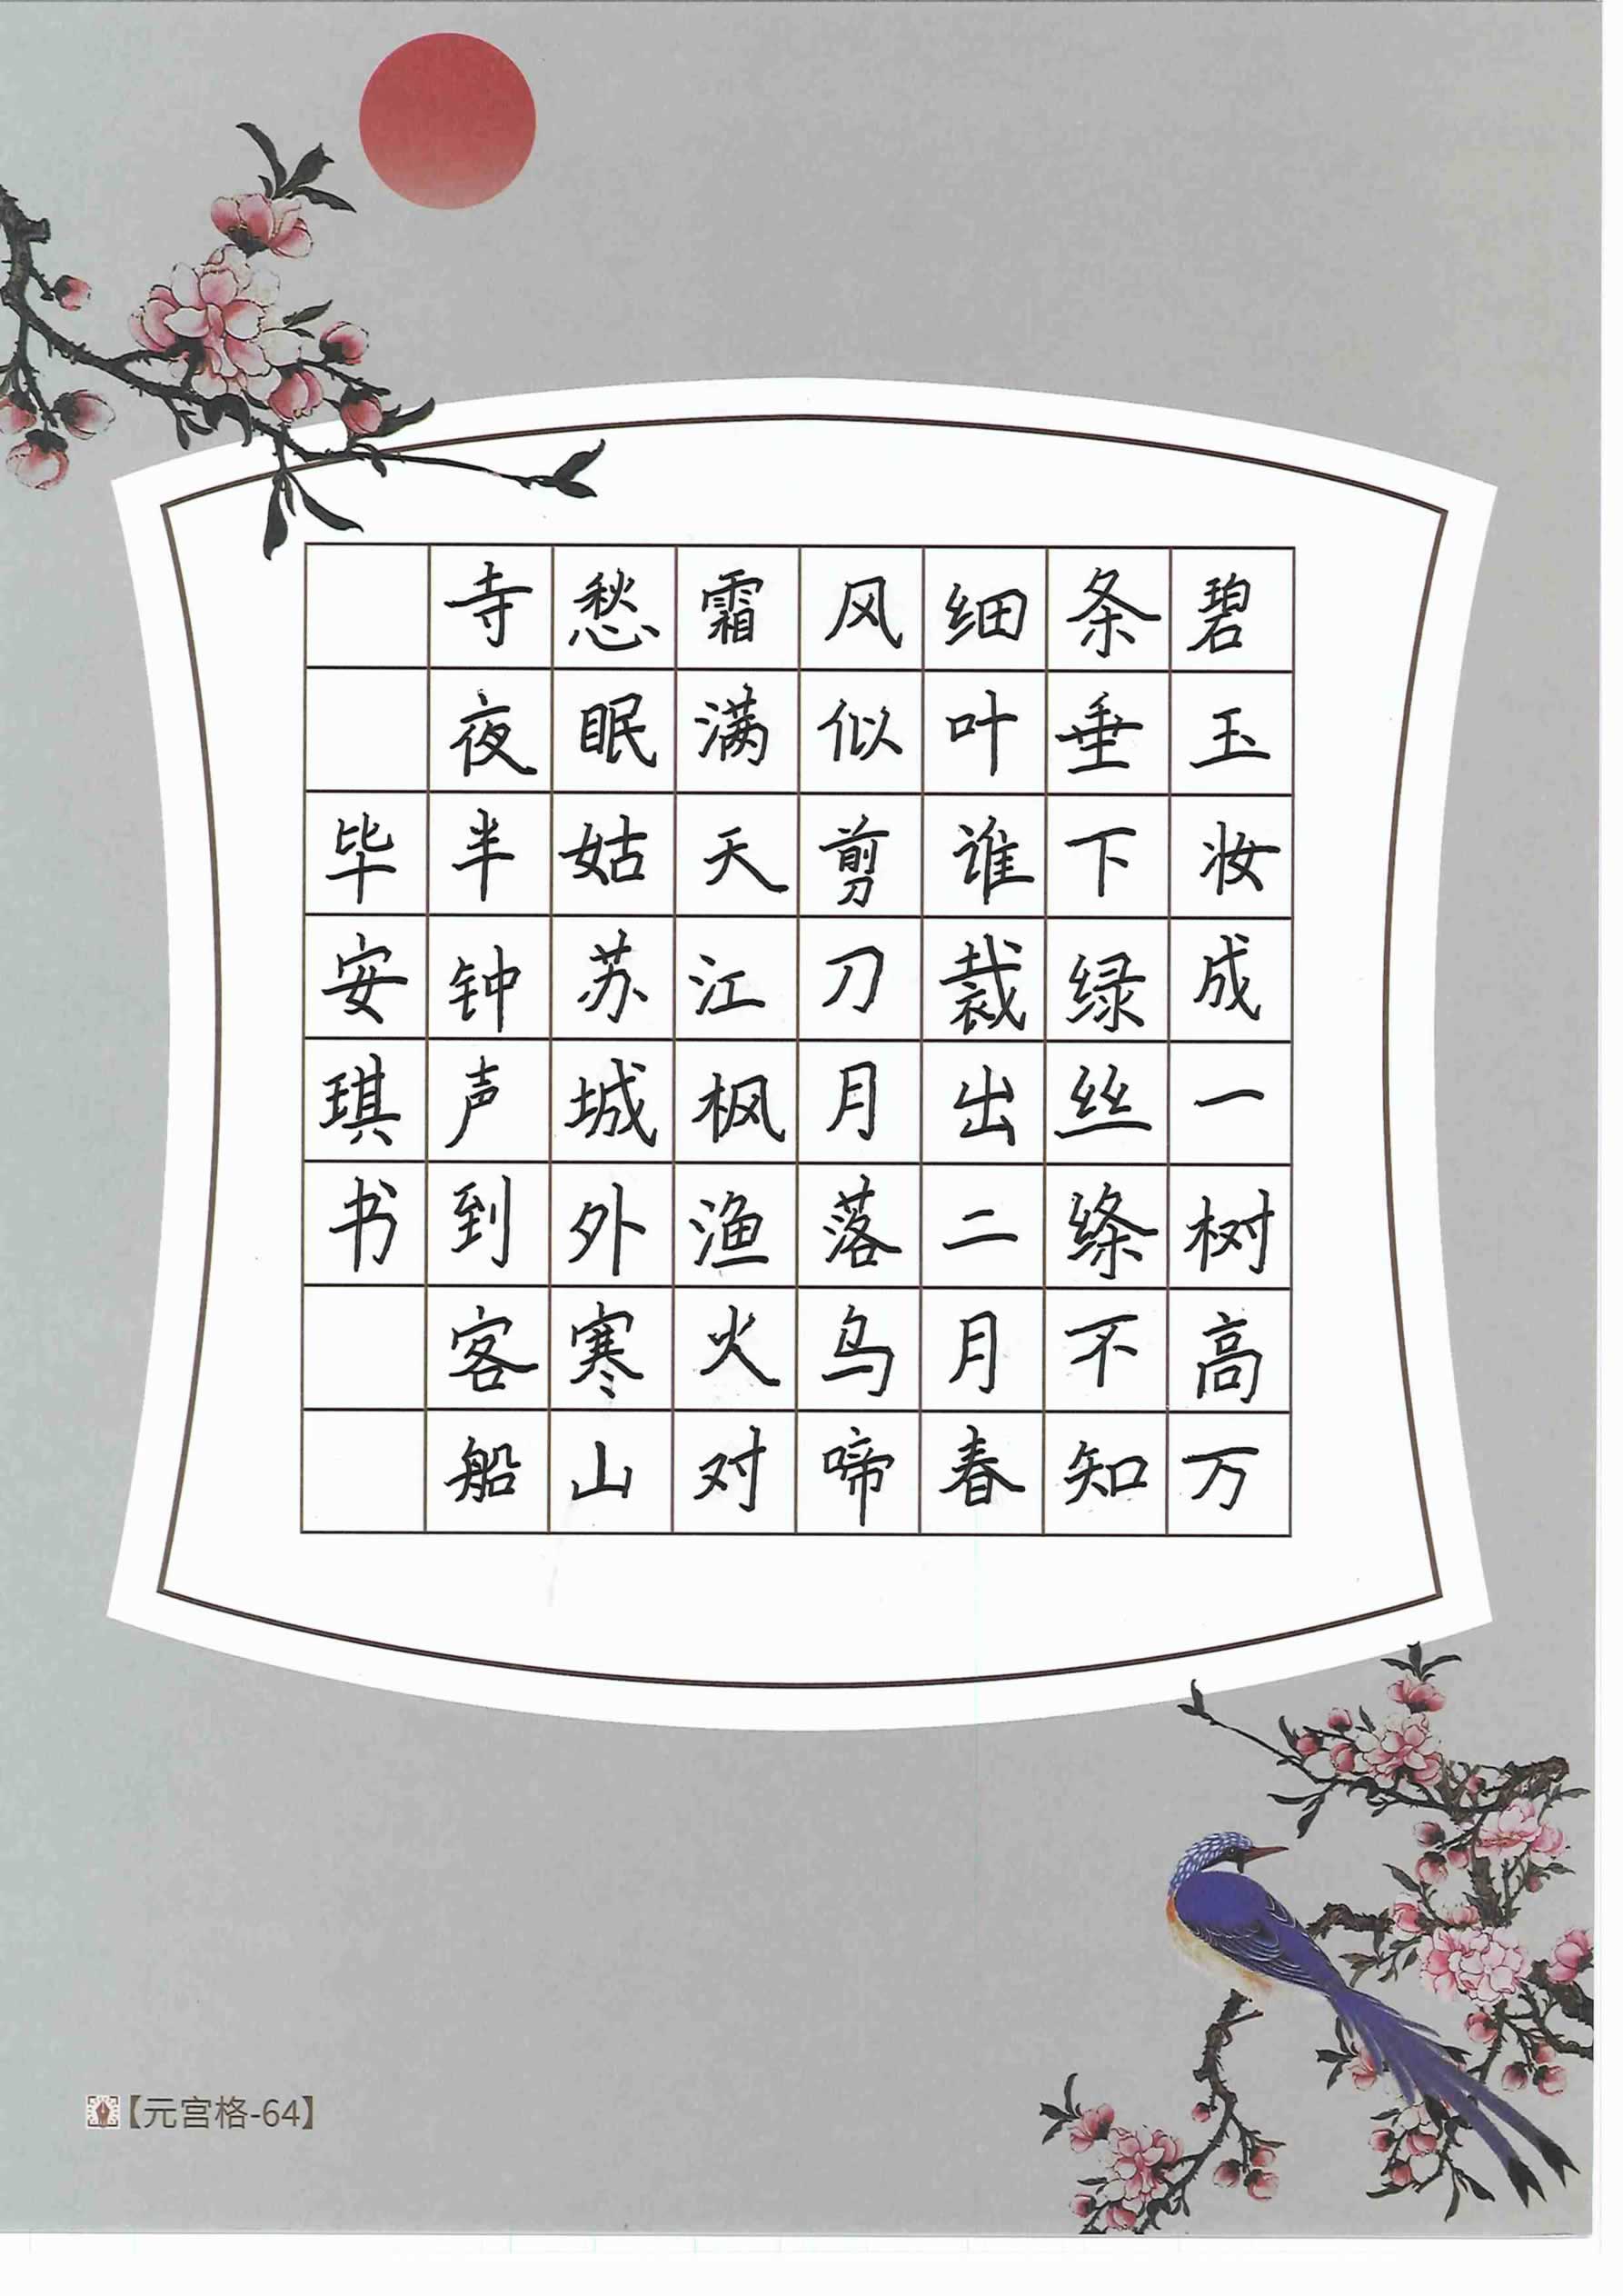 碧玉妆成一树高万
条垂下绿丝绦不知
细叶谁裁出二月春
风似剪刀月落乌啼
霜满天江枫渔火对
愁眠姑苏城外寒山
寺夜半钟声到客船
毕安琪书
【元宫格-64】